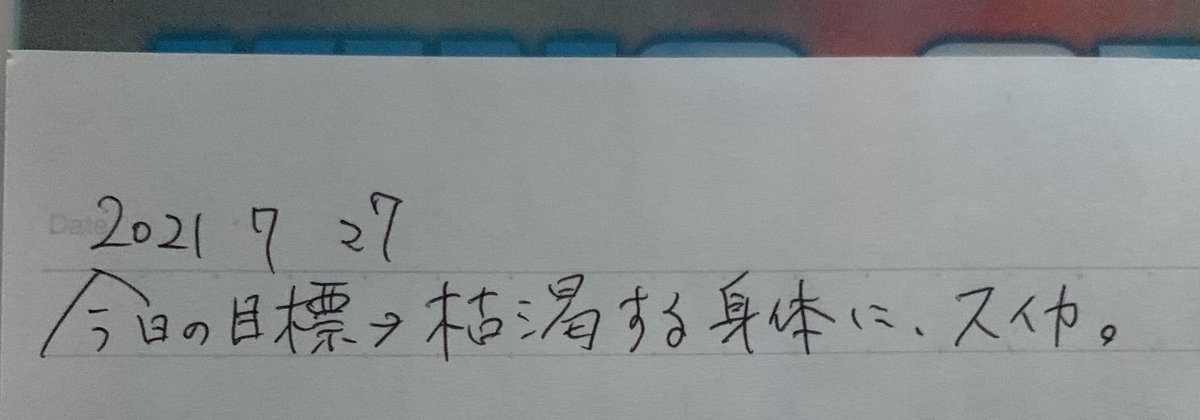 Date
2021 7 27
今日の目標→枯渇する身体に、スイカ。